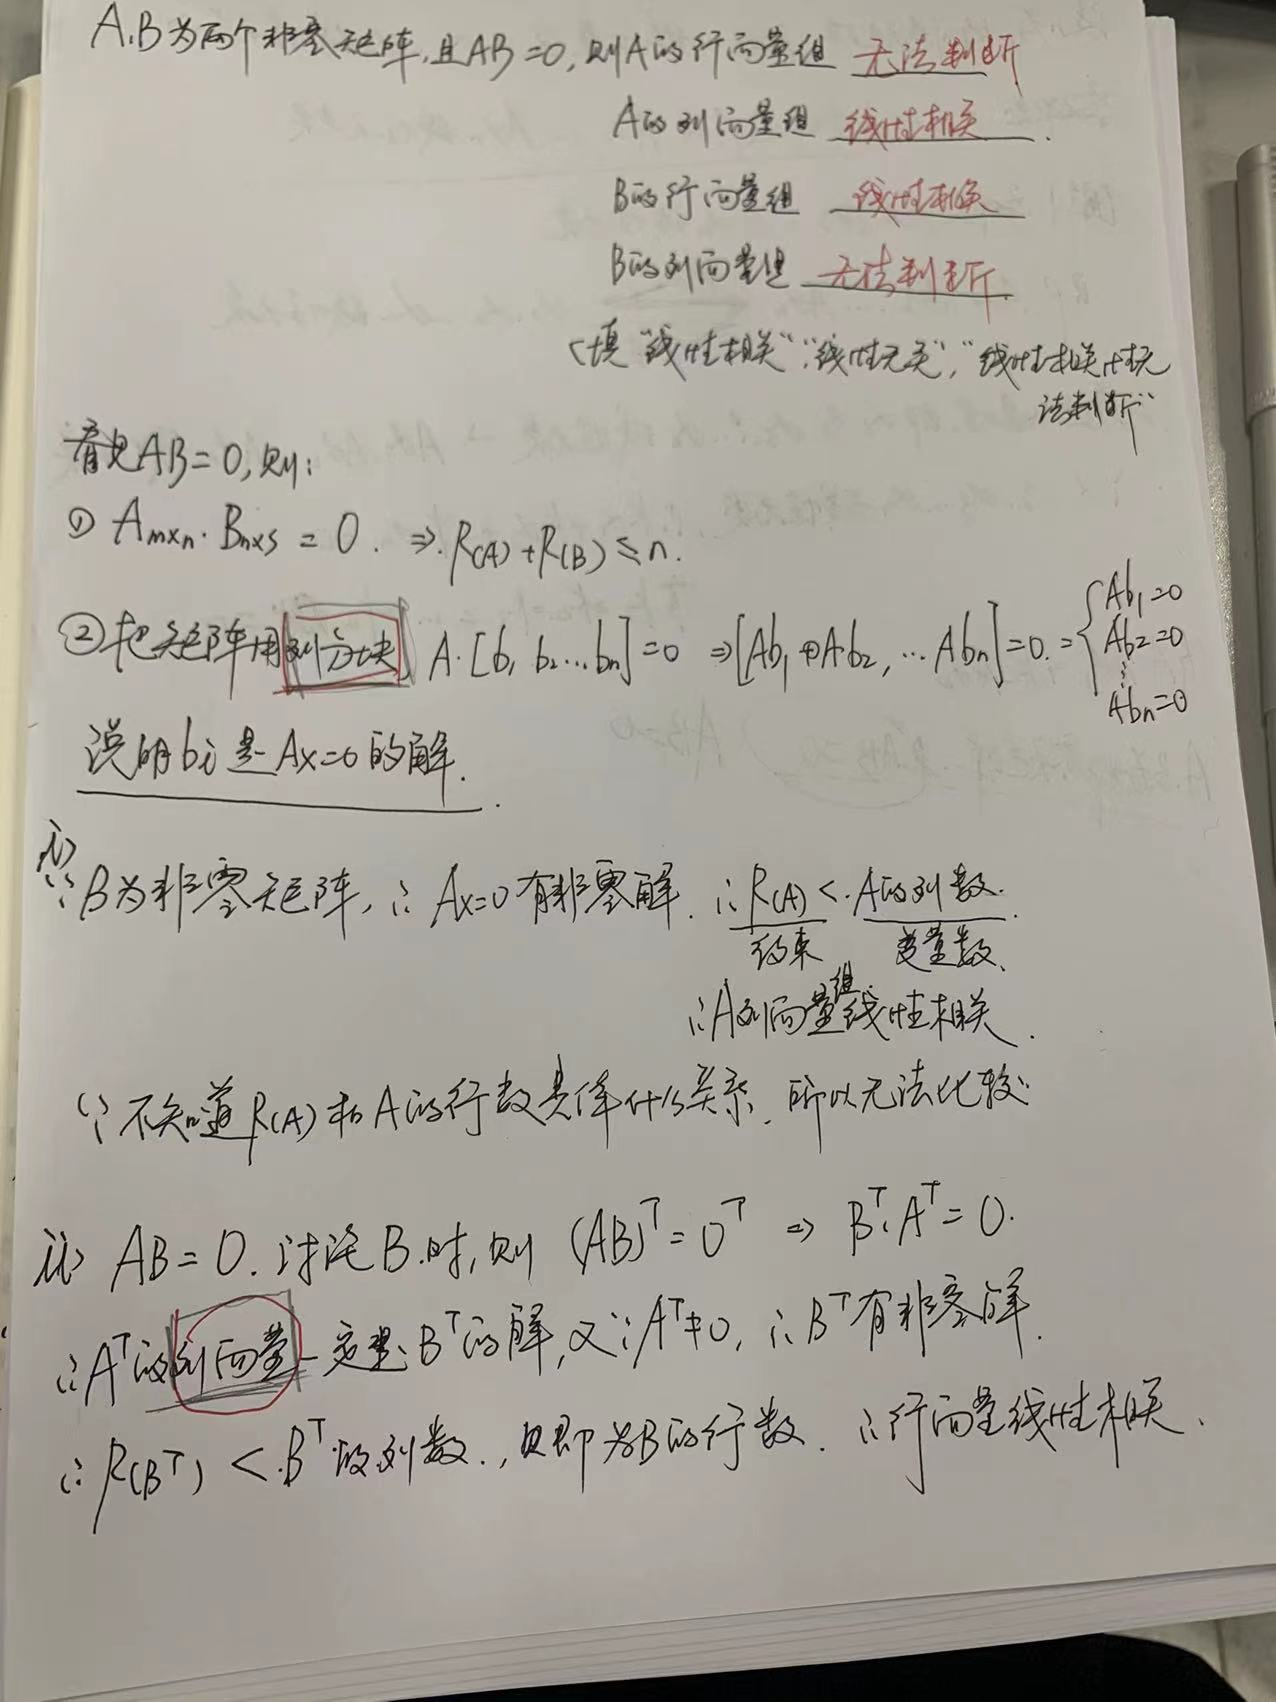 A,B为两个非零矩阵,且AB=0,则A的行向量组 无法判断
A的列向量组 线性相关.
B的行向量组 线性相关
B的列向量组 无法判断.
(填"线性相关","线性无关","线性相关性无
法判断"
看见AB=0,则:
① Am×n·Bn×s=0. ⇒.R(A)+R(B)≤n.
②把矩阵用列分块, A·[b₁ b₂...bn]=0 ⇒[Ab₁ Ab₂,...Abn]=0.={Ab₁=0
Ab₂=0
⋮
Abn=0
说明bi是Ax=0的解.
i)
∵B为非零矩阵,∴Ax=0有非零解.∴R(A)<A的列数.
约束 变量数.
∴A列向量组线性相关.
∵不知道R(A)和A的行数具体什么关系.所以无法比较
ii) AB=0.讨论B时,则 (AB)ᵀ=0ᵀ ⇒ Bᵀ·Aᵀ=0.
∴Aᵀ的列向量一定是Bᵀ的解,又∵Aᵀ≠0,∴Bᵀ有非零解.
∴R(Bᵀ)<Bᵀ的列数.,即为B的行数.∴行向量线性相关.